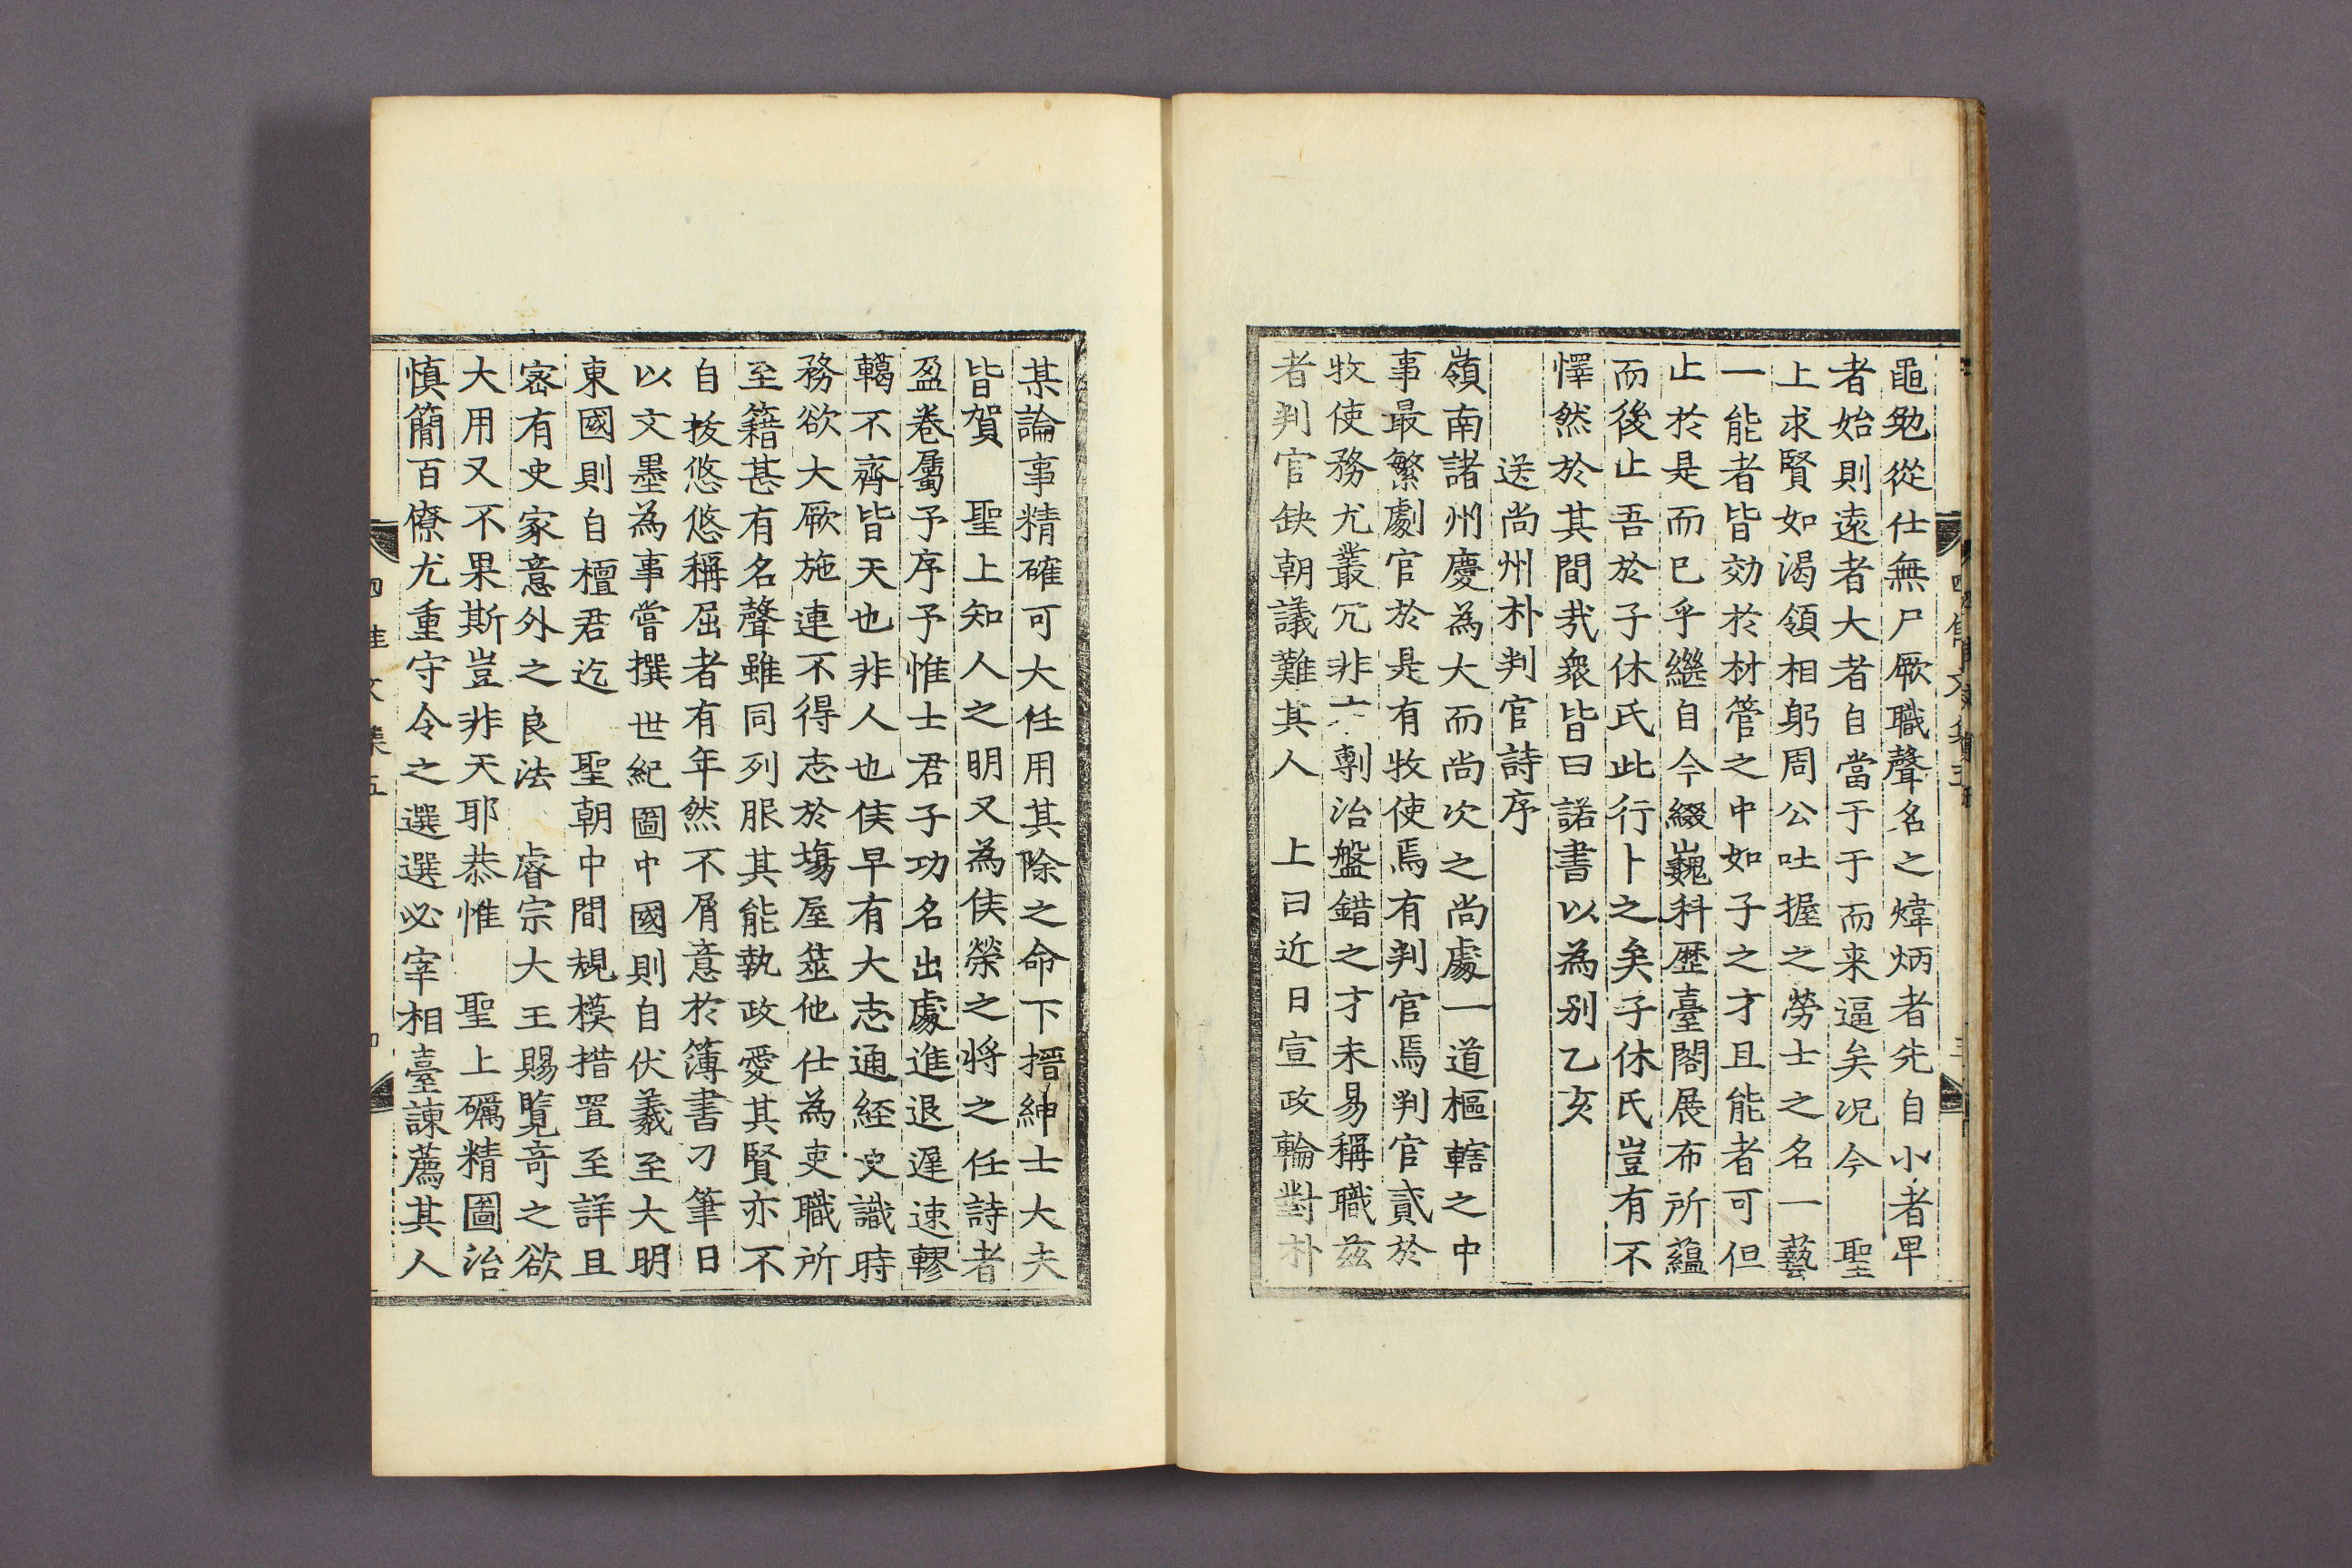 黽勉從仕無尸厥職聲名之煒炳者先自小者早
者始則遠者大者自當于于而来逼矣况今　聖
上求賢如渴領相躬周公吐握之勞士之名一藝
一能者皆効於材管之中如子之才且能者可但
止於是而已乎繼自今綴巍科歷臺閣展布所蘊
而後止吾於子休氏此行卜之矣子休氏豈有不
懌然於其間㢤衆皆曰諾書以為别乙亥
送尚州朴判官詩序
嶺南諸州慶為大而尚次之尚處一道樞轄之中
事最繁劇官於是有牧使焉有判官焉判官貳於
牧使務尤叢冗非剸治盤錯之才未易稱職茲
者判官缺朝議難其人　上曰近日宣政輪對朴
某論事精確可大任用其除之命下搢紳士大夫
皆賀　聖上知人之明又為侯榮之将之任詩者
盈卷屬予序予惟士君子功名出處進退遅速轇
轕不齊皆天也非人也侯早有大志通經史識時
務欲大厥施連不得志於塲屋筮他仕為吏職所
至籍甚有名聲雖同列服其能執政愛其賢亦不
自拔悠悠稱屈者有年然不屑意於簿書刁筆日
以文墨為事嘗撰世紀圖中國則自伏羲至大明
東國則自檀君迄　聖朝中間規模措置至詳且
宻有史家意外之良法　睿宗大王賜覽竒之欲
大用又不果斯豈非天耶恭惟　聖上礪精圖治
慎簡百僚尤重守令之選選必宰相臺諫薦其人